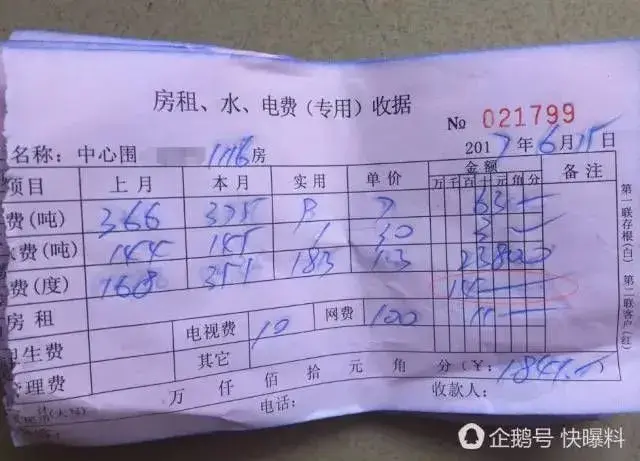 房租、水、电费(专用)收据
№ 021799
名称: 中心围 1176房 2017年6月25日
项目 上月 本月 实用 单价 金额 备注
万 千 百 十 元 角 分
费(吨) 366 375 7 63
费(吨) 144 145 1 30 3
费(度) 168 351 183 1.3
房租
电视费 10 网费 100
卫生费 其它
管理费 万 仟 佰 拾 元 角 分(¥:
电话: 收款人:
第一联存根(白) 第二联客户(红)
企鹅号 快曝料